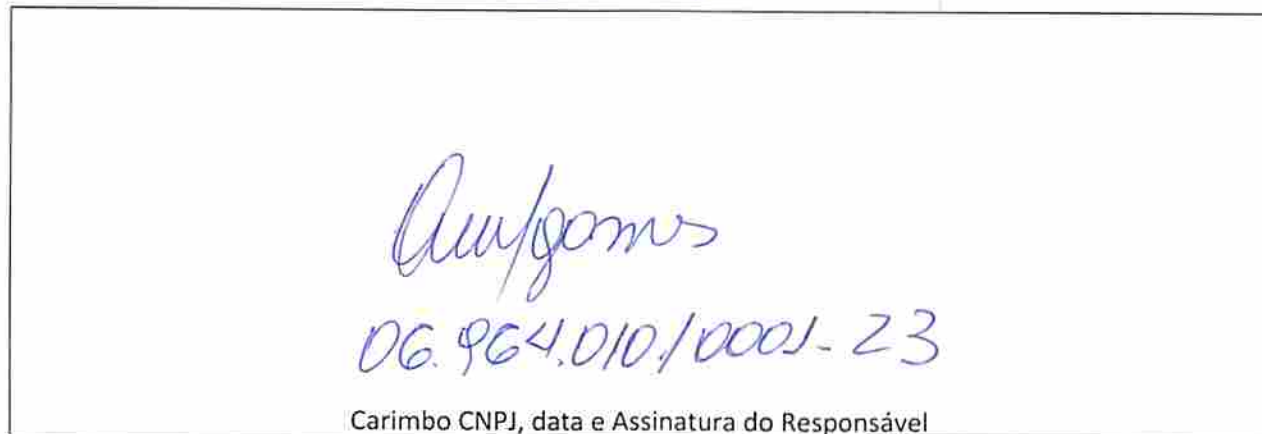 06.964.010/0001-23
Carimbo CNPJ, data e Assinatura do Responsável